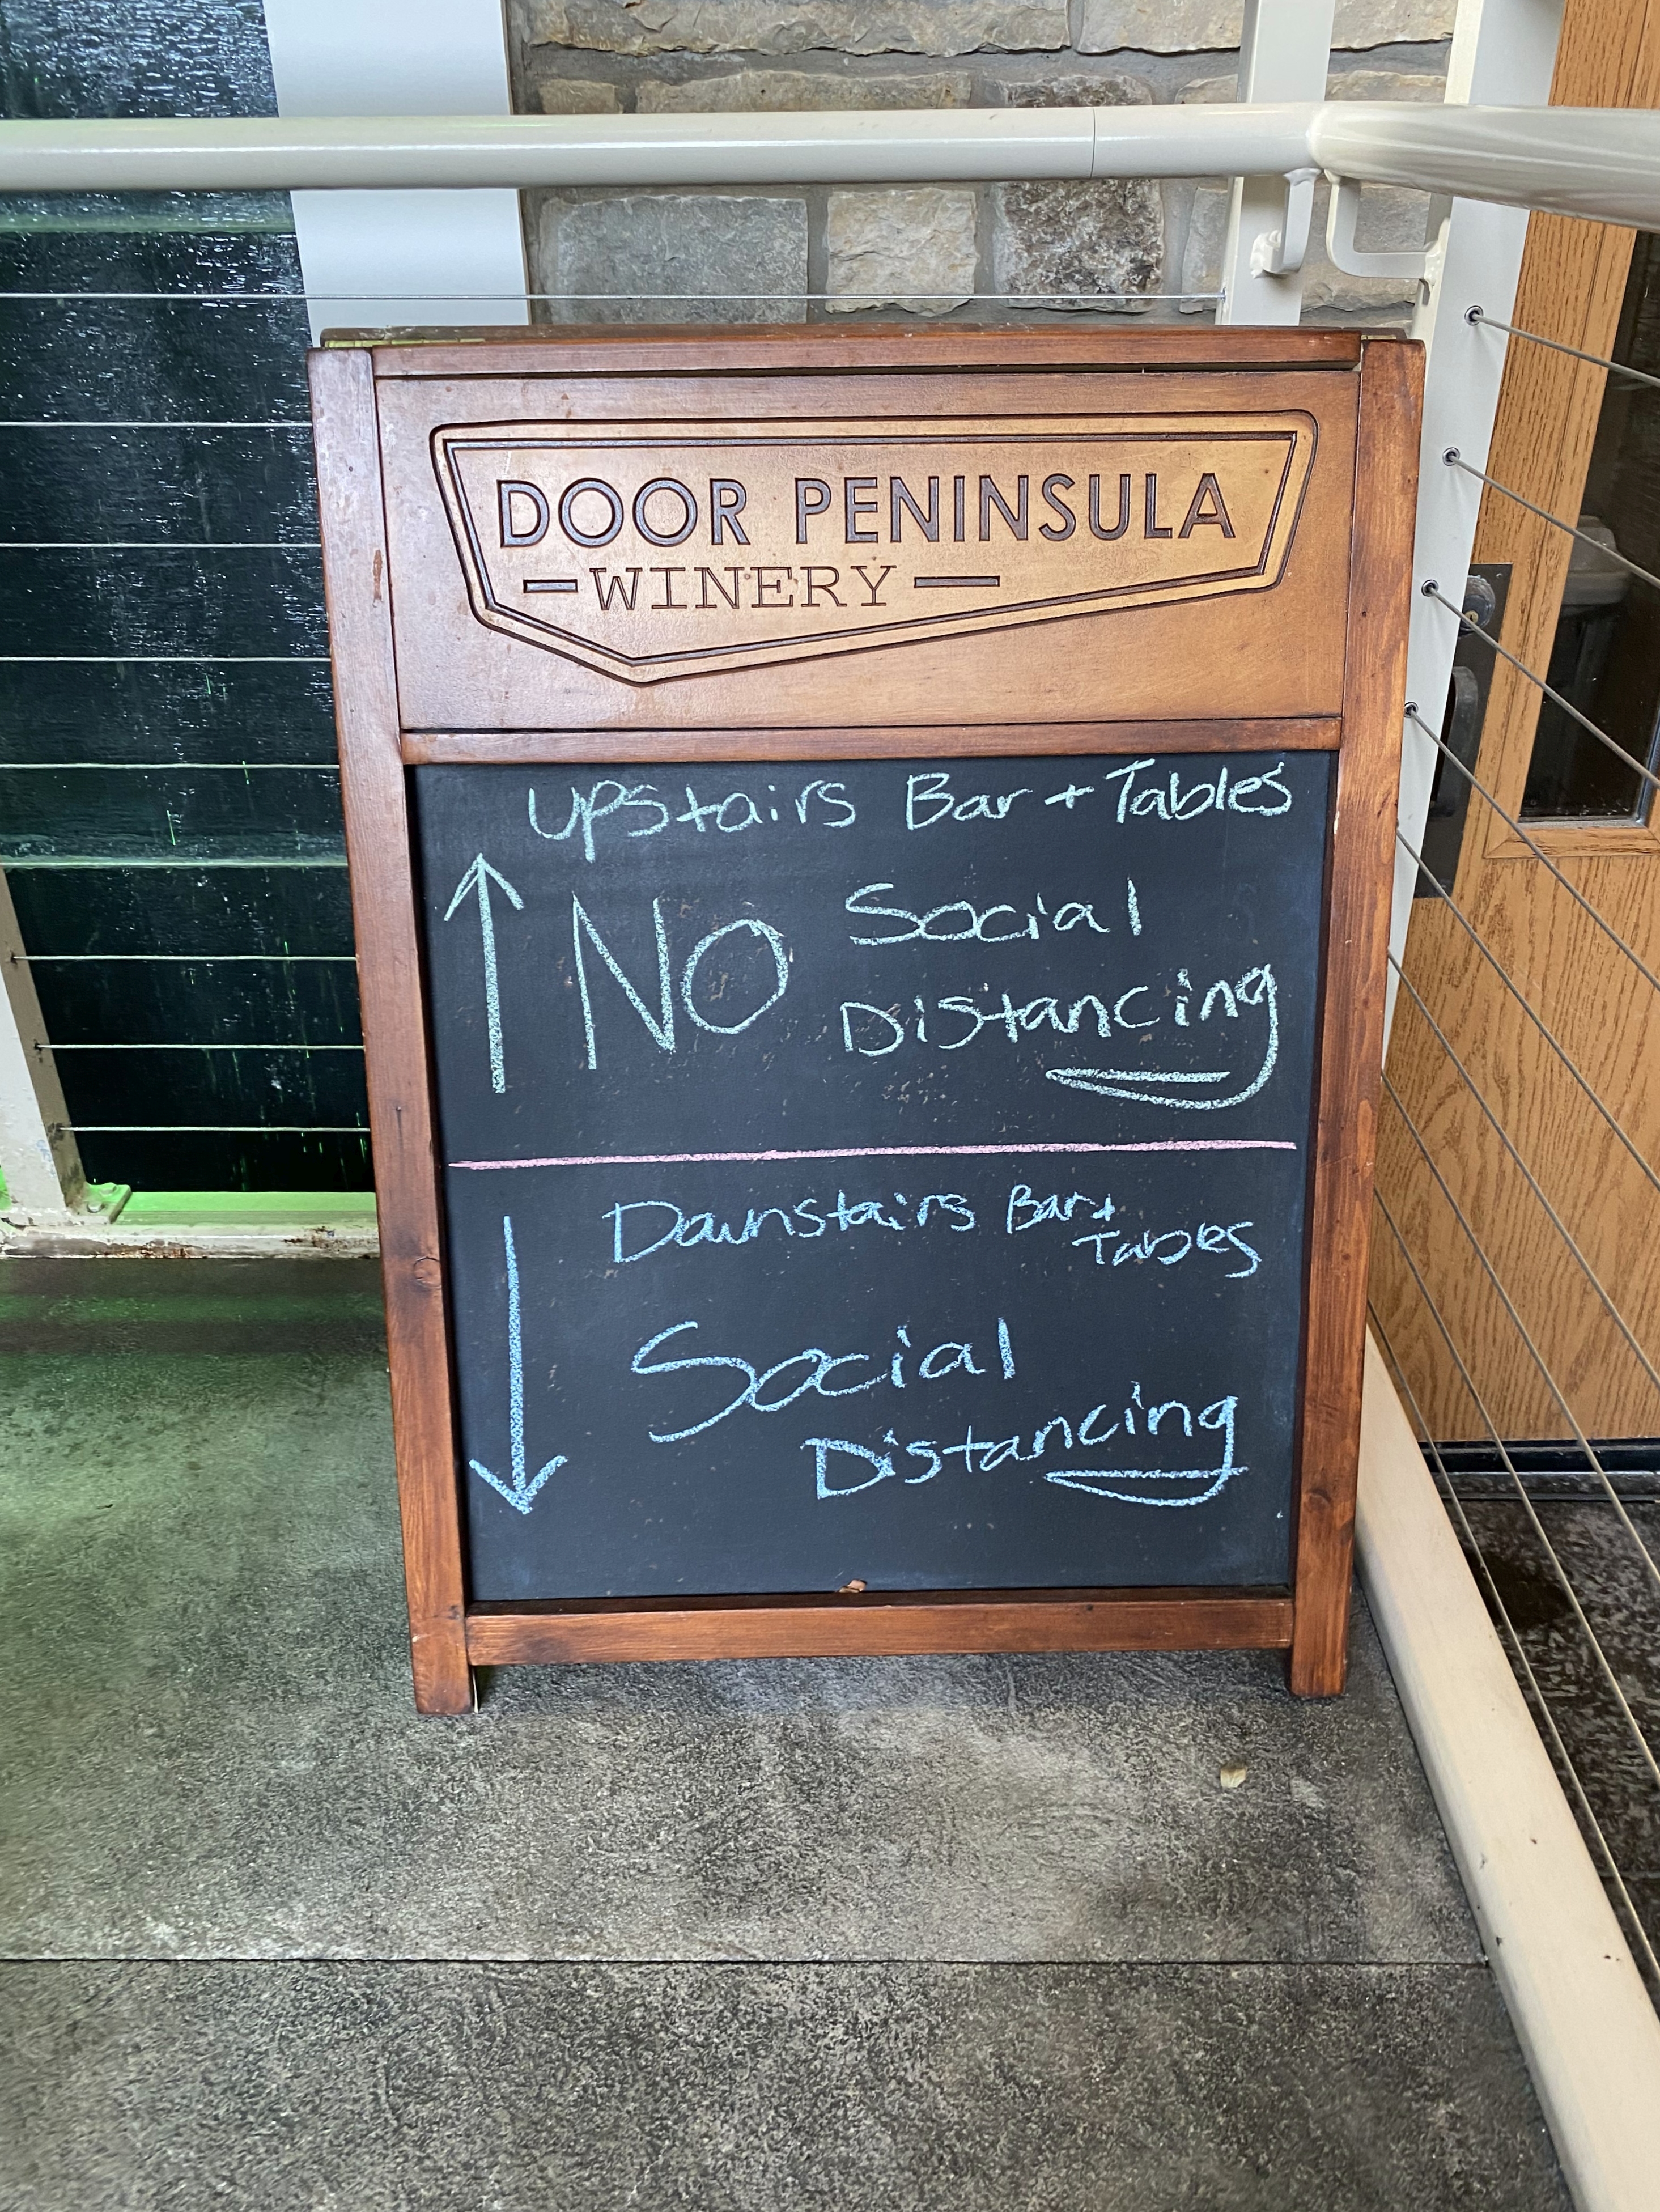 DOOR PENINSULA
WINERY
Upstairs Bar + Tables
NO Social
Distancing
Downstairs Bar +
Tables
Social
Distancing